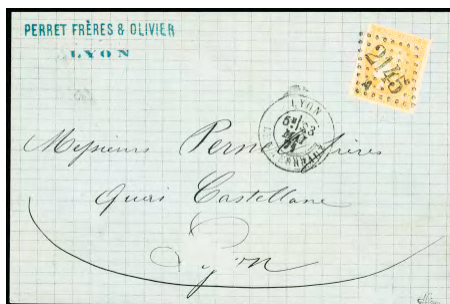 PERRET FRÈRES & OLIVIER
LYON
2145
LYON
MAI
Messieurs Pernet frères
Quai Castellane
Lyon